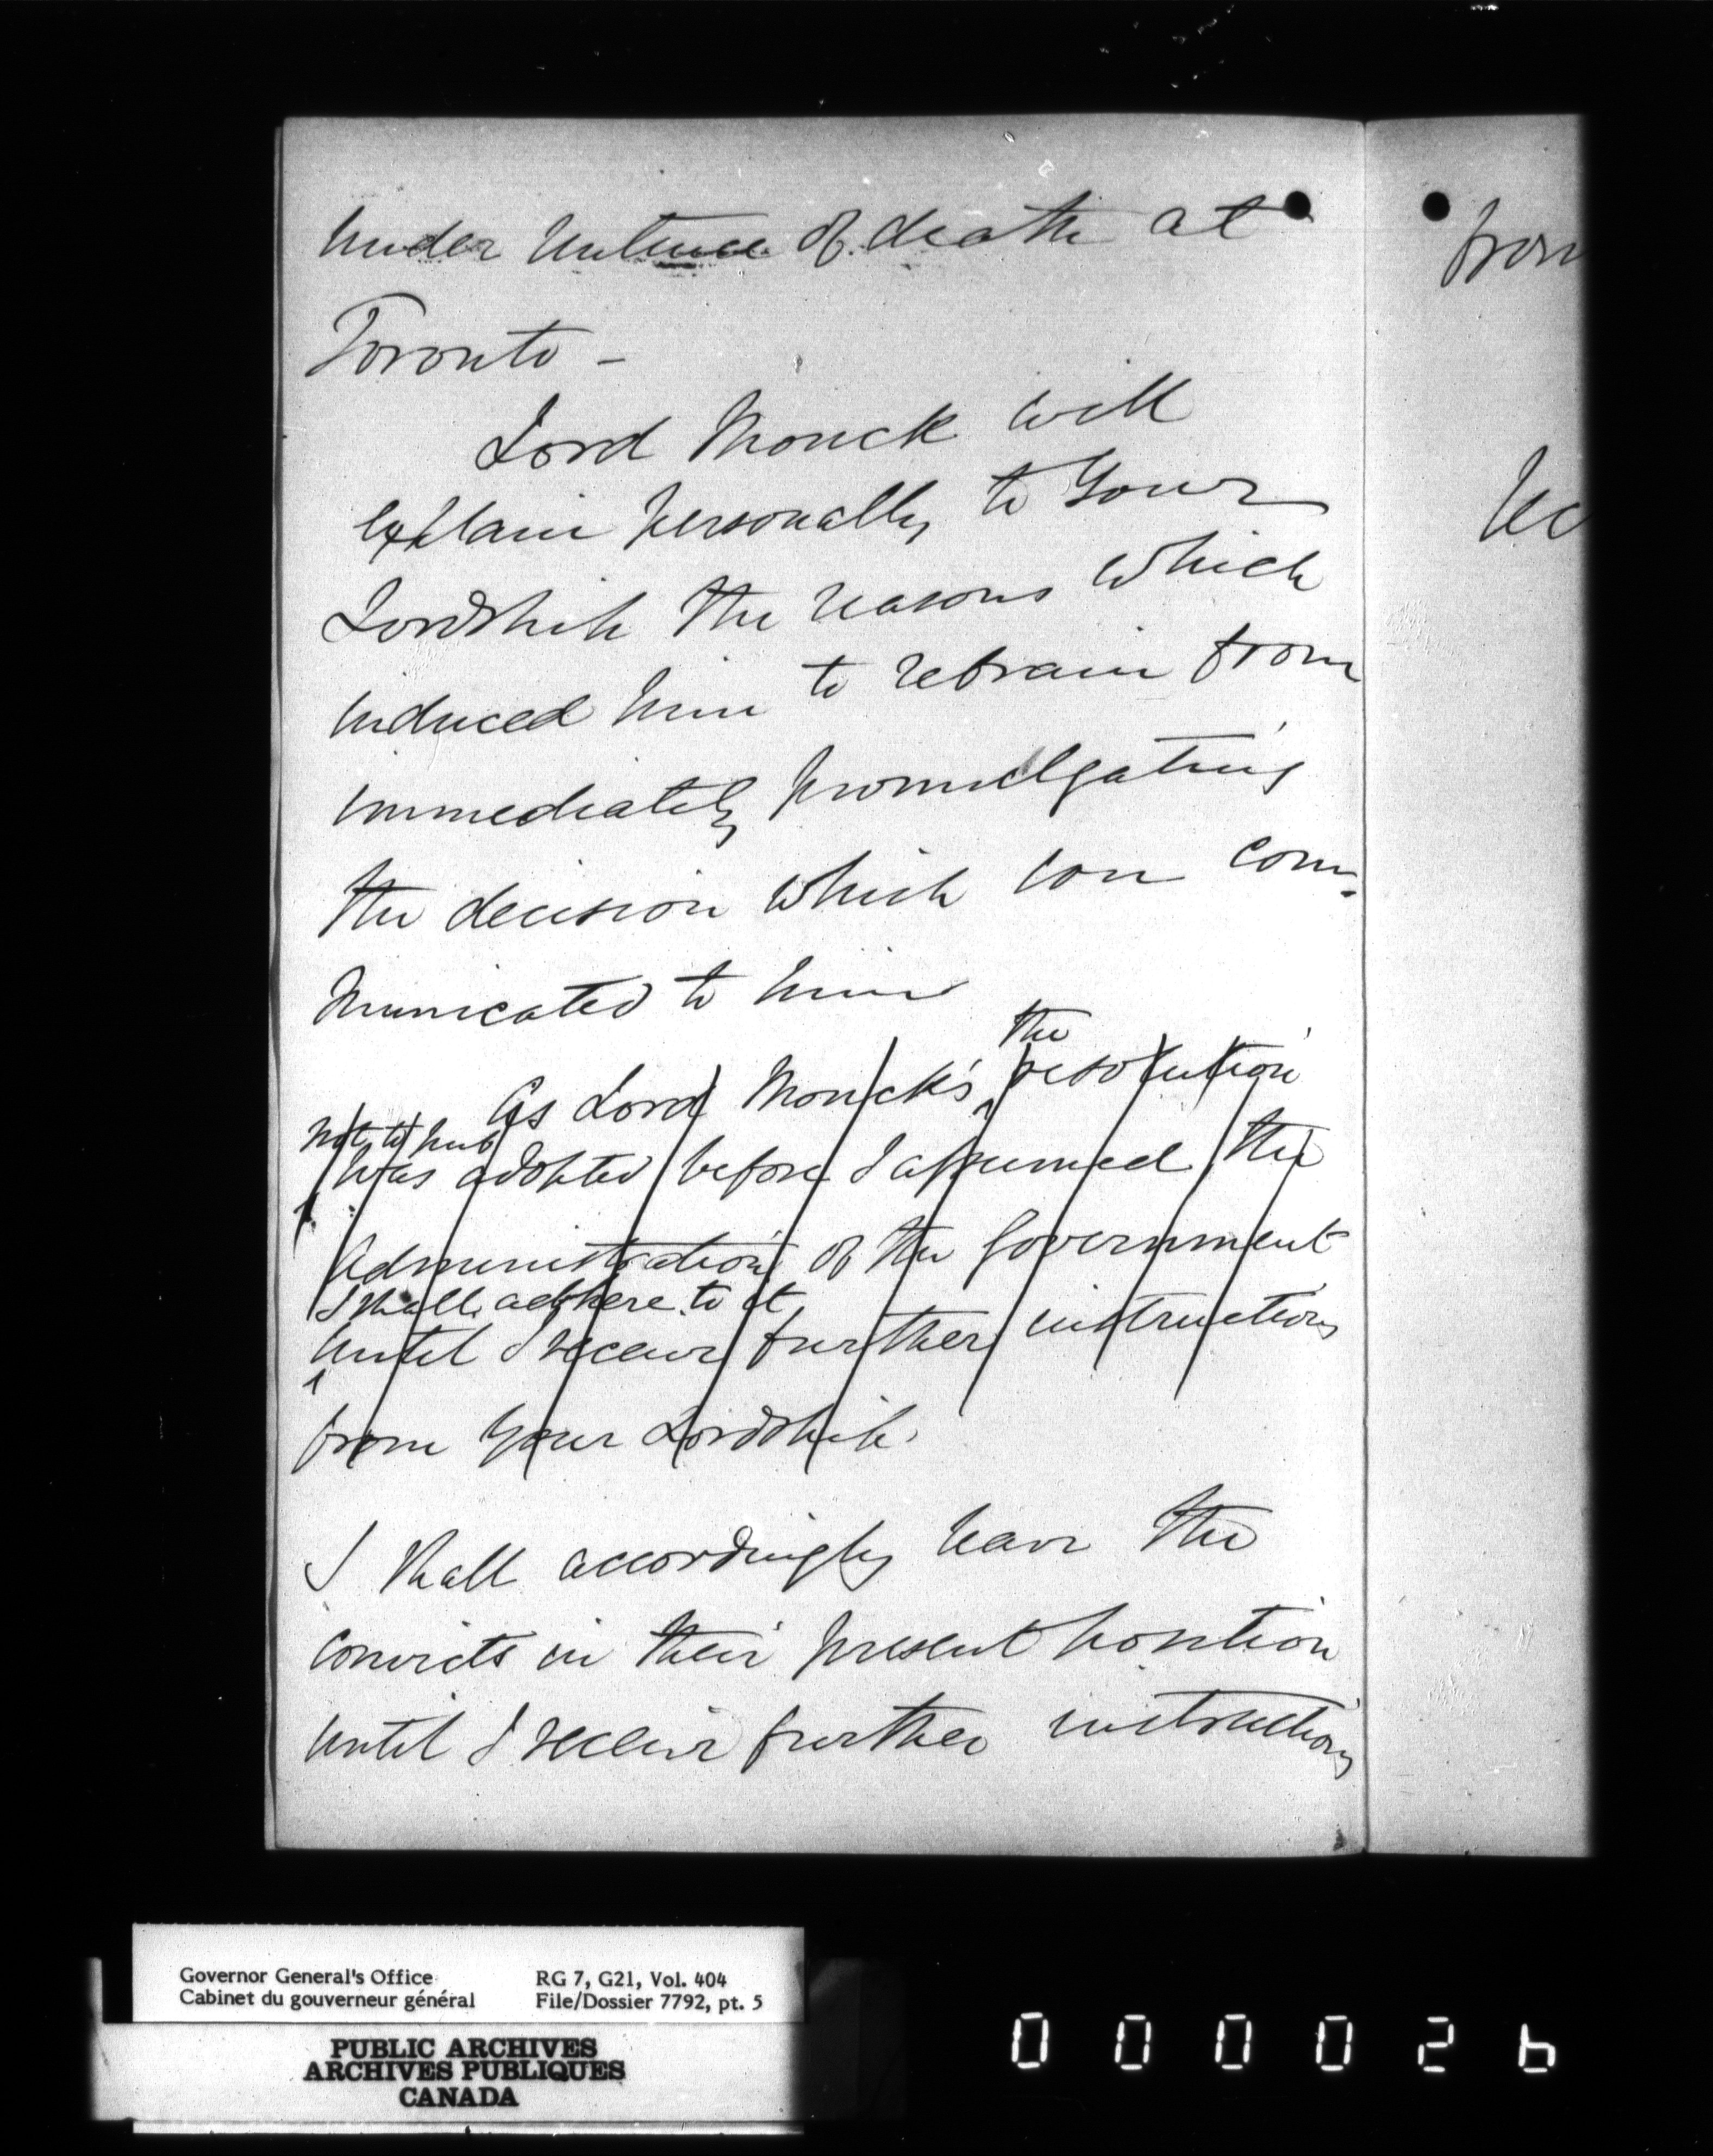 under sentence of death at
Toronto -
Lord Monck will
explain personally to Your
Lordship the reasons which
induced him to refrain from
immediately promulgating
the decision which was com-
municated to him
the
As Lord Monck's resolution
not to pub
was adopted before I assumed the
Administration of the Government
I shall adhere to it
until I receive further instructions
from Your Lordship.
I shall accordingly leave the
convicts in their present position
until I receive further instructions
from
Governor General's Office
Cabinet du gouverneur général
RG 7, G21, Vol. 404
File/Dossier 7792, pt. 5
PUBLIC ARCHIVES
ARCHIVES PUBLIQUES
CANADA
000026